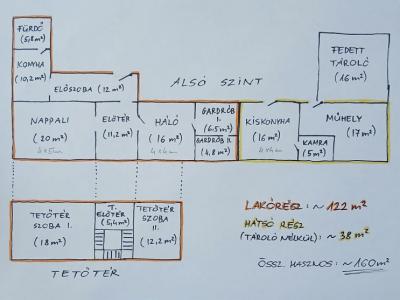 FÜRDŐ
(5,8 m²)
KONYHA
(10,2 m²)
ELŐSZOBA (12 m²)
ALSÓ SZINT
FEDETT
TÁROLÓ
(16 m²)
NAPPALI
(20 m²)
4x5m
ELŐTÉR
(11,2 m²)
HÁLÓ
(16 m²)
4x4m
GARDRÓB
I.
(6.5 m²)
GARDRÓB II.
(4,8 m²)
KISKONYHA
(16 m²)
4x4m
MŰHELY
(17 m²)
KAMRA
(5 m²)
TETŐTÉR
SZOBA I.
(18 m²)
T.
ELŐTÉR
(5,4 m²)
TETŐTÉR
SZOBA
II.
(12,2 m²)
TETŐTÉR
LAKÓRÉSZ: ~ 122 m²
HÁTSÓ RÉSZ
(TÁROLÓ NÉLKÜL): ~ 38 m²
ÖSSZ. HASZNOS: ~ 160 m²